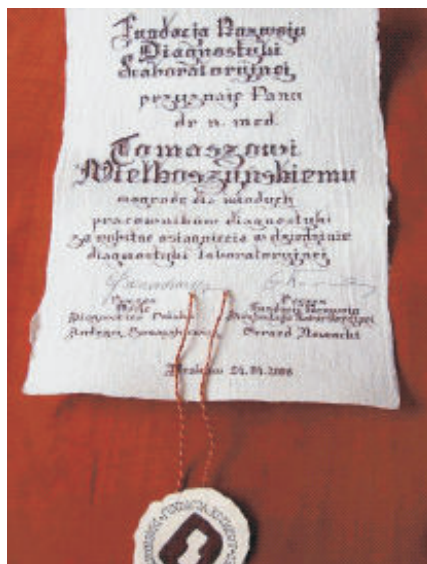 Fundacja Rozwoju
Diagnostyki
Laboratoryjnej
przyznaje Panu
dr n. med.
Tomaszowi
Wielkoszyńskiemu
nagrodę dla młodych
pracowników diagnostyki
za wybitne osiągnięcia w dziedzinie
diagnostyki laboratoryjnej
Prezes
Prezes
Fundacji Rozwoju
Diagnostyka Polska
Diagnostyki Laboratoryjnej
Gerard Nowacki
Kraków 24.04.2006